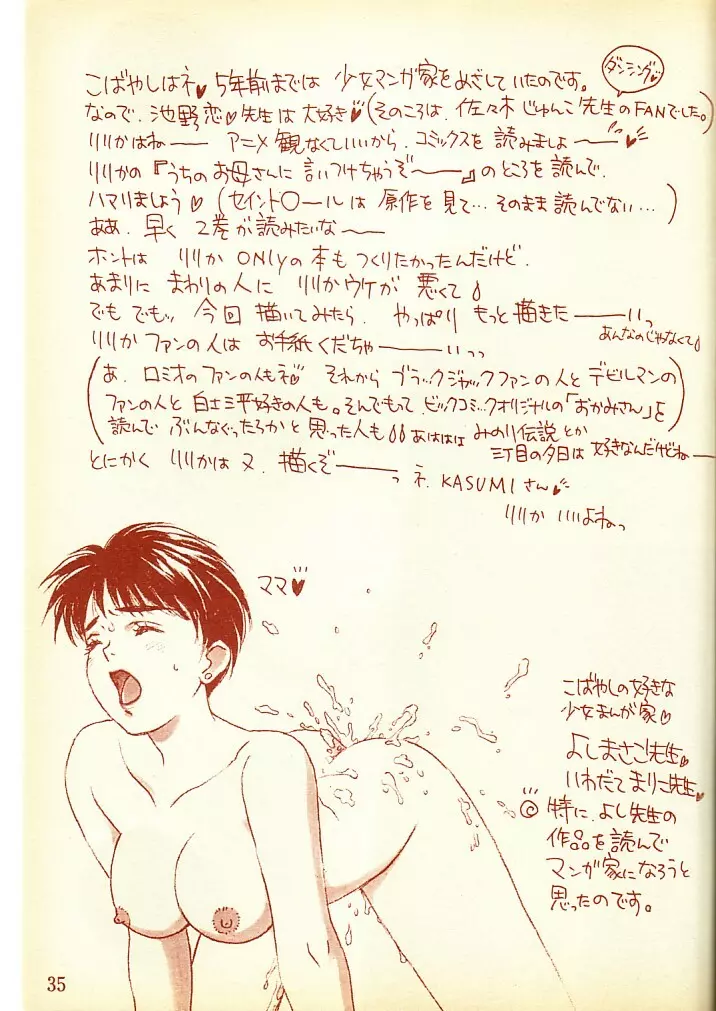 こばやしはネ♥5年前までは 少女マンガ家をめざしていたのです。
ダンシング♥
なので、池野恋♥先生は大好き♥(そのころは、佐々木じゅんこ先生のFANでした。)
リリかはねー アニメ観なくていいから、コミックスを読みましょー♥
リリかの『うちのお母さんに言いつけちゃうぞー』のところを読んで、
ハマりましょう♥(セイント〇ールは 原作を見て…そのまま読んでない…)
ああ、早く 2巻が読みたいなー
ホントは リリか ONLYの本もつくりたかったんだけど、
あまりに まわりの人に リリかウケが 悪くて
でもでもッ 今回描いてみたら、やっぱり もっと描きたーいっ
あんなのじゃなくて
リリか ファンの人は お手紙くだちゃーいっっ
(あ、ロミオのファンの人もネ♥ それから ブラックジャックファンの人と デビルマンの
ファンの人と 白土三平好きの人も。そんでもって ビックコミックオリジナルの「おかみさん」を
読んで ぶんなぐったろかと 思った人も あははは みのり伝説とか
三丁目の夕日は 好きなんだけどねー
とにかく リリかは又、描くぞーっ ネ、KASUMIさん♥
リリか いいよねっ
ママ♥
こばやしの好きな
少女まんが家♥
よしまさこ先生♥
いわだてまりこ先生♥
◎特に、よし先生の
作品を読んで
マンガ家になろうと
思ったのです。
35